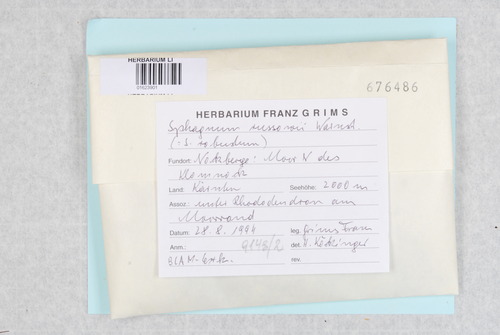 HERBARIUM LI
676486
HERBARIUM FRANZ GRIMS
Sphagnum russowii Warnst.
(: S. robustum)
Fundort: Nockberge: Moor N des
Land: Kärnten Seehöhe: 2000 m
Assoz.: unter Rhododendron am
Moorrand
Datum: 28. 8. 1994 leg. Grims Franz
Anm.: 9145/2 det. H. Köckinger
rev.